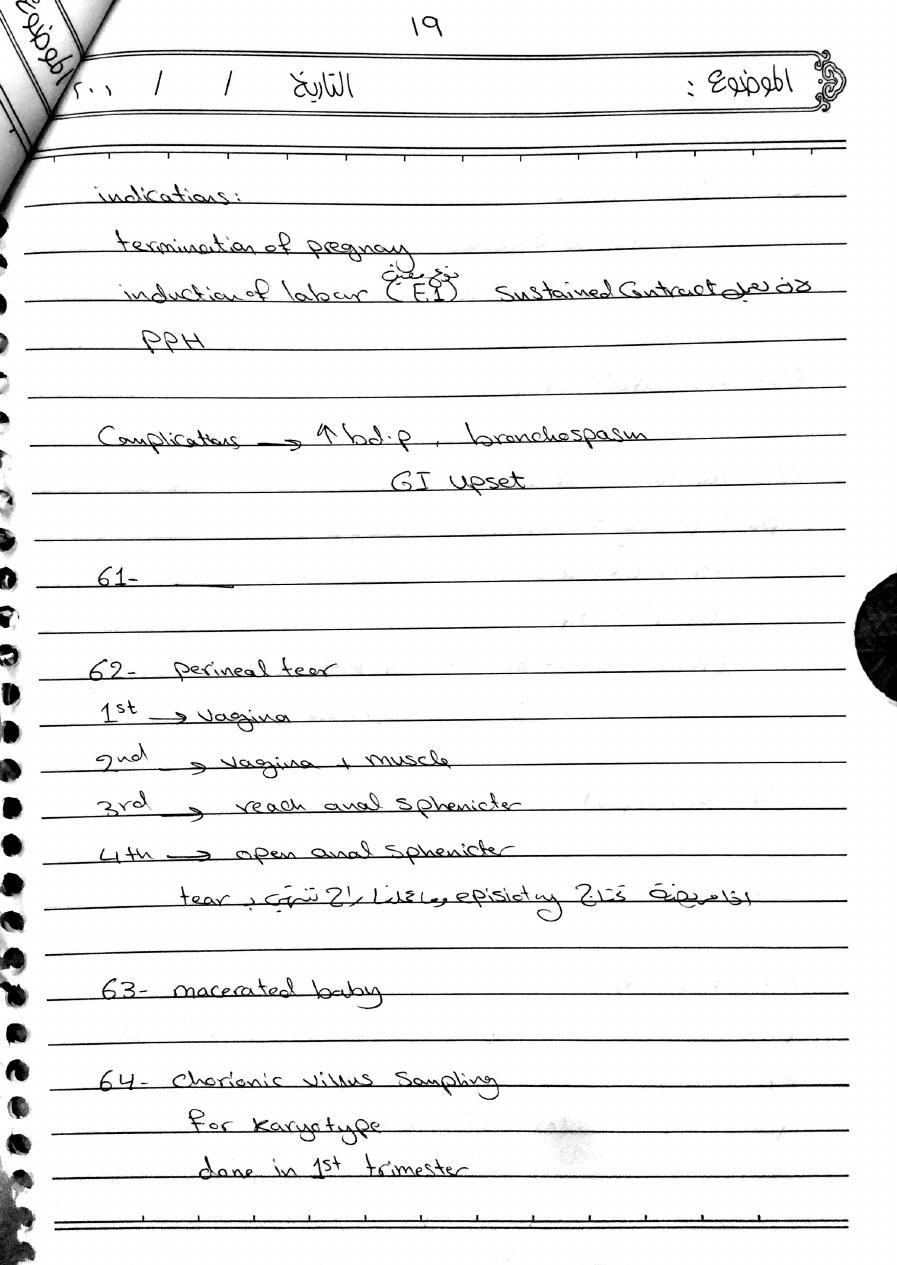 19
الموضوع
الموضوع : التاريخ / / ٢٠٠١
indications:
termination of pregnay
نوع معين
induction of labour (E1) Sustained Contract
PPH
Complications → ↑ bd.p , bronchospasm
GI upset
61- ___
62- perineal tear
1st → vagina
2nd → vagina + muscle
3rd → reach anal sphenicter
4th → open anal sphenicter
اذا مريضة تحتاج episiotmy وما عملنا راح تسبب tear
63- macerated baby
64- chorionic villus sampling
for karyotype
done in 1st trimester